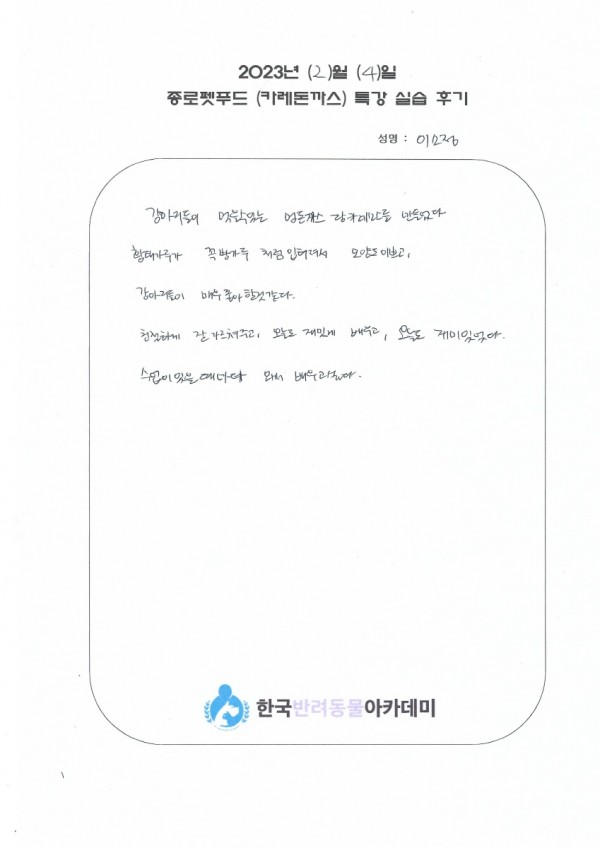 2023년 (2)월 (4)일
종로펫푸드 (카레돈까스) 특강 실습 후기
성명 : 이소정
강아지들이 먹을수있는 돈까스랑 카레를 만들었다
황태가루가 꼭 빵가루 처럼 입혀져서 모양도 이쁘고,
강아지들이 매우 좋아할것같다.
친절하게 잘 가르쳐주고, 오늘도 재밌게 배우고, 오늘도 재미있었다.
수업이 있을때마다 와서 배우고싶다.
한국반려동물아카데미